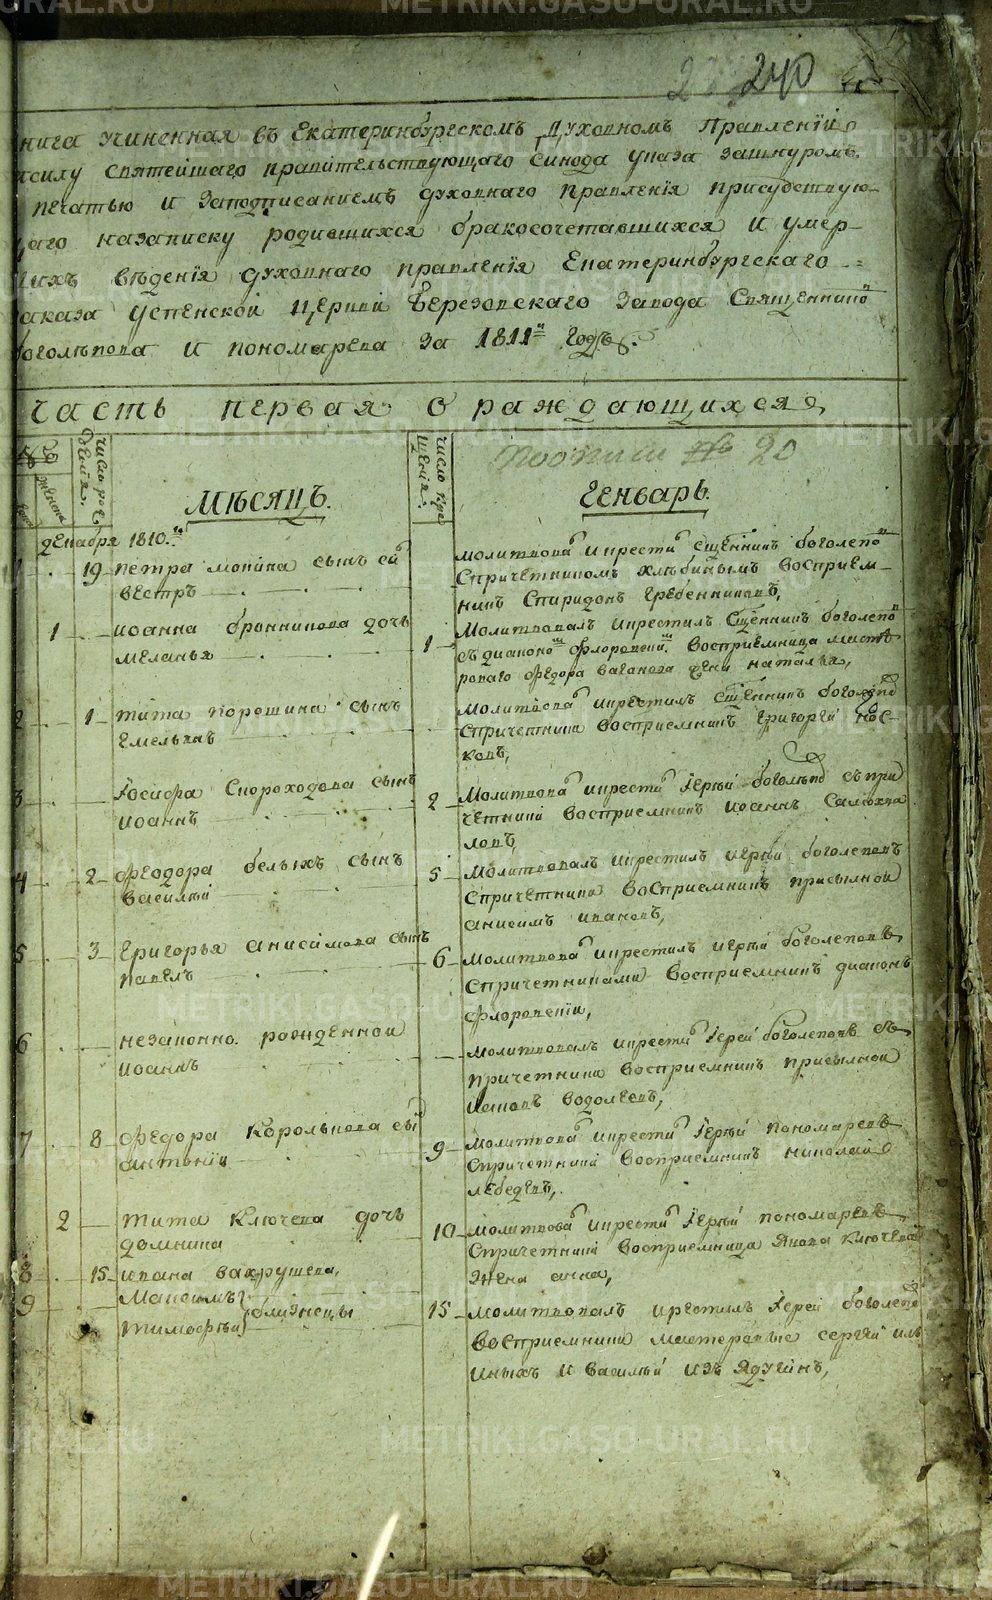 METRIKI.GASO-URAL.RU
240
нига учиненная въ Екатеринбургскомъ Духовномъ Правленіи
силу святейшаго правительствующаго Синода указа зашнуромъ
печатью и заподписаниемъ духовнаго правленія присудствую-
щаго назаписку родившихся бракосочетавшихся и умер-
шихъ вѣденія духовнаго правленія Екатеринбургскаго
аказа Успенской церкви Березовскаго завода Священников
оголѣпова и пономарева за 1811й Годъ.
Часть первая о раждающихся
Число рожденія
Число крещенія
прописи № 20
женска
Мѣсяцъ.
Генварь.
декабря 1810.го
19 петра мокина сынъ силвестръ
молитвова и крести сщенникъ боголепо
спричетникомъ хлѣбинымъ восприем-
никъ Спиридонъ Гребенниковъ,
1 иоанна бронникова дочь
меланья
1
Молитвовалъ икрестилъ Сщенникъ боголепо
съ диакономъ Флоровскимъ. восприемница масте
роваго Федора ваганова жена наталья,
2 1 тита порошина сынъ
Емельянъ
молитвова икрестилъ сщенникъ боголепо
спричетники восприемникъ григорей нос-
ковъ,
3 Іосифа Скороходова сынъ
иоаннъ
2
Молитвова икрести Іерѣй боголѣпо съ при
четники восприемникъ иоаннъ
ловъ,
4 2 Феодора белыхъ сынъ
василѣй
5
молитвовалъ икрестилъ иерѣй боголеповъ
спричетники восприемникъ присылной
анисимъ ивановъ,
5 3 Григорья анисимова сынъ
павелъ
6
молитвова икрестилъ иерѣй боголеповъ
спричетниками восприемникъ диаконъ
Флоровскіи,
6 незаконно рожденной
иоаннъ
молитвовалъ икрести Іерей боголеповъ съ
причетники восприемникъ присылной
водолеевъ,
7 8 Федора Королькова сы
антоніи
9
молитвова икрести Іерѣй пономаревъ
спричетники восприемникъ николай
лебедевъ,
2 тита Ключева дочь
домника
10
молитвова икрести Іерѣй пономаревъ
спричетники восприемница Якова Ключева
жена анна,
8 15 ивана вахрушева,
9 Максимъ
тимофѣй близнецы
15
молитвовалъ икрестилъ Іерей боголепо
восприемники мастеровые сергѣй иль
иныхъ и василѣй